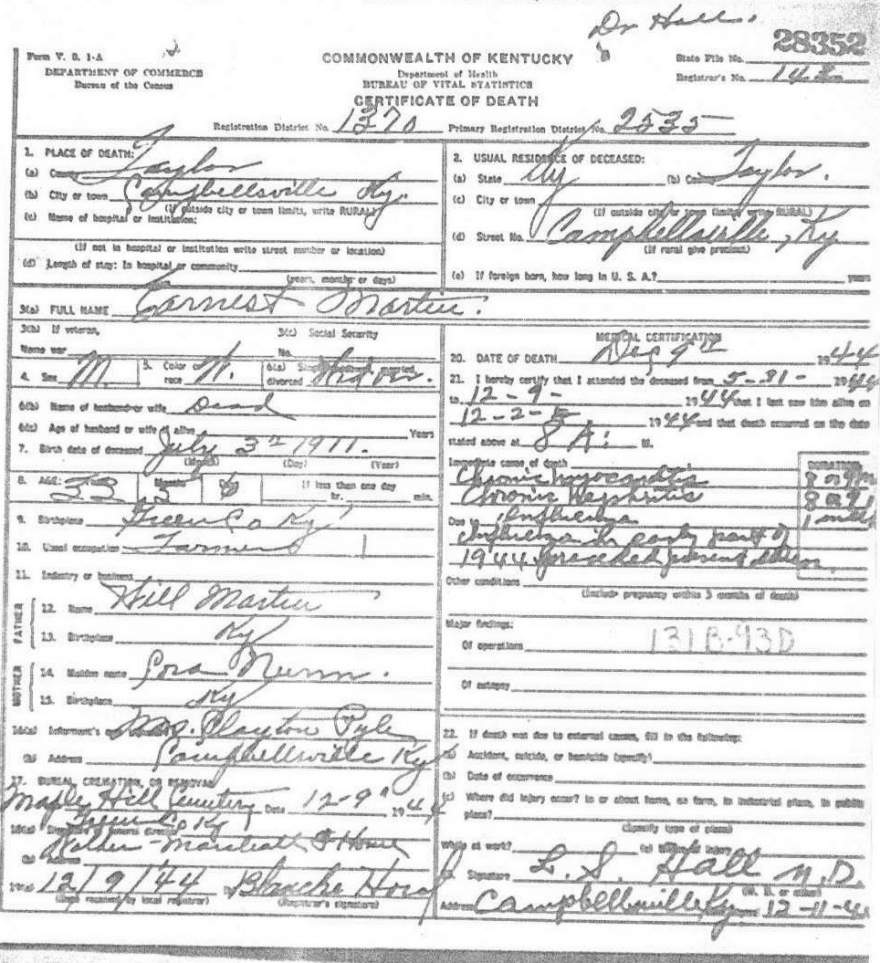 Dr Hall.
28352
Form V. S. 1-A
DEPARTMENT OF COMMERCE
Bureau of the Census
COMMONWEALTH OF KENTUCKY
Department of Health
BUREAU OF VITAL STATISTICS
CERTIFICATE OF DEATH
State File No.
Registrar's No. 142
Registration District No. 1370 Primary Registration District No. 2535
1. PLACE OF DEATH:
(a) County Taylor
(b) City or town Campbellsville Ky.
(If outside city or town limits, write RURAL)
(c) Name of hospital or institution:
(If not in hospital or institution write street number or location)
(d) Length of stay: In hospital or community
(years, months or days)
2. USUAL RESIDENCE OF DECEASED:
(a) State Ky (b) County Taylor.
(c) City or town
(If outside city or town limits write RURAL)
(d) Street No. Campbellsville, Ky
(If rural give precinct)
(e) If foreign born, how long in U. S. A.? years
3(a) FULL NAME Earnest Martin.
3(b) If veteran,
Name war
3(c) Social Security
No.
4. Sex M. 5. Color or race W. 6(a) Single, widowed, married, divorced Widower.
6(b) Name of husband or wife Dead
6(c) Age of husband or wife if alive Years
7. Birth date of deceased July 3rd 1911.
(Month) (Day) (Year)
8. AGE: 33 Months 5 6 If less than one day
hr. min.
9. Birthplace Green Co Ky
10. Usual occupation Farmer
11. Industry or business
FATHER
12. Name Will Martin
13. Birthplace Ky
MOTHER
14. Maiden name Cora Nunn.
15. Birthplace Ky
16(a) Informant's Mrs. Clayton Pyle
(b) Address Campbellsville Ky
17. BURIAL, CREMATION, OR REMOVAL
Maple Hill Cemetery Date 12-9 1944
Green Co Ky
18(a) Signature of funeral director Marshall F Home
(b) Address
19(a) 12/9/44 Blanche
(Date received by local registrar) (Registrar's signature)
MEDICAL CERTIFICATION
20. DATE OF DEATH Dec 9th 1944
21. I hereby certify that I attended the deceased from 5-31- 1944
to 12-9- 1944 that I last saw him alive on
12-2- 1944 and that death occurred on the date
stated above at 8 A. M.
Immediate cause of death DURATION
Chronic Myocarditis
Chronic Nephritis
Due to Influenza
Influenza in early part of
1944 preceded present
Other conditions
(Include pregnancy within 3 months of death)
Major findings:
Of operations 131B-93D
Of autopsy
22. If death was due to external causes, fill in the following:
(a) Accident, suicide, or homicide (specify)
(b) Date of occurrence
(c) Where did injury occur? In or about home, on farm, in industrial place, in public
place?
(Specify type of place)
While at work? (e) Means of injury
Signature L. S. Hall M.D.
(M. D. or other)
Address Campbellsville Ky 12-11-44